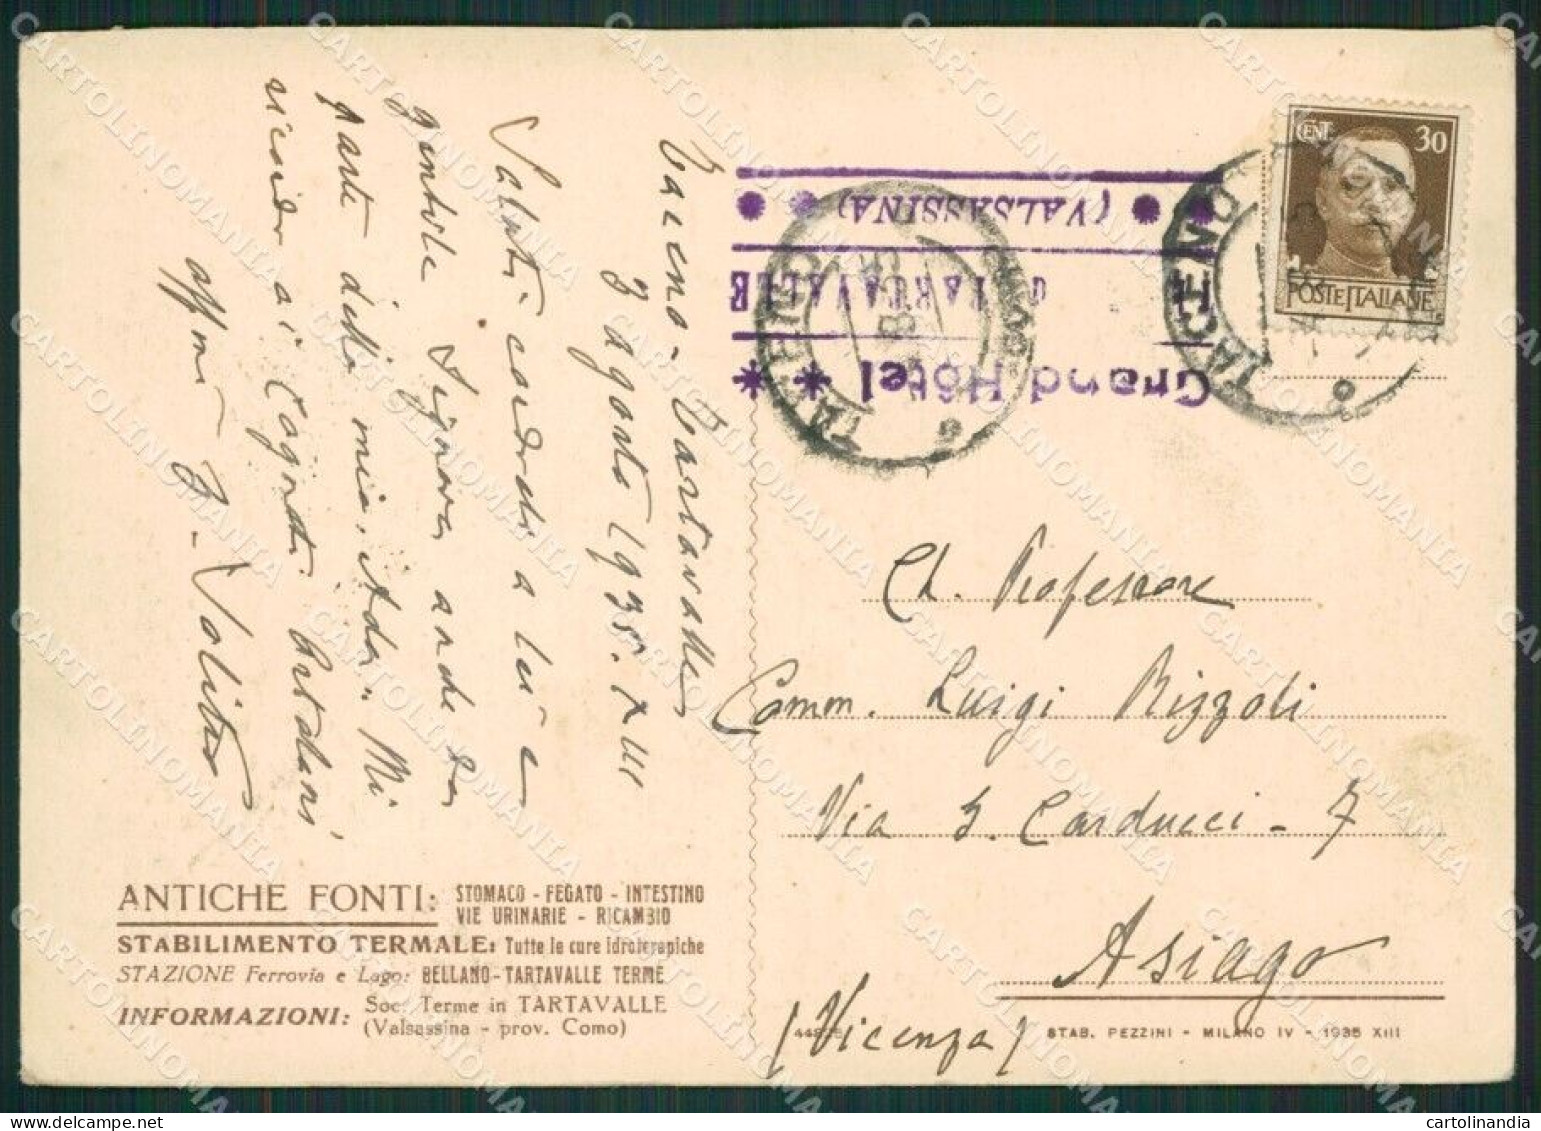 Taceno - Tartavalle
3 agosto 1935. XIII
Saluti cordiali a lei e
gentile Signora anche da
parte della mia Ada. Mi
ricordi ai Cagnati
affmo
ANTICHE FONTI: STOMACO - FEGATO - INTESTINO
VIE URINARIE - RICAMBIO
STABILIMENTO TERMALE: Tutte le cure idroterapiche
STAZIONE Ferrovia e Lago: BELLANO - TARTAVALLE TERME
INFORMAZIONI: Soc. Terme in TARTAVALLE
(Valsassina - prov. Como)
Grand Hôtel **
TARTAVALLE
(VALSASSINA)
TACENO
TACENO
CENT 30
POSTE ITALIANE
Ch. Professore
Comm. Luigi Rizzoli
Via G. Carducci - 7
Asiago
(Vicenza)
STAB. PEZZINI - MILANO IV - 1935 XIII
CARTOLINOMANIA
cartolinandia